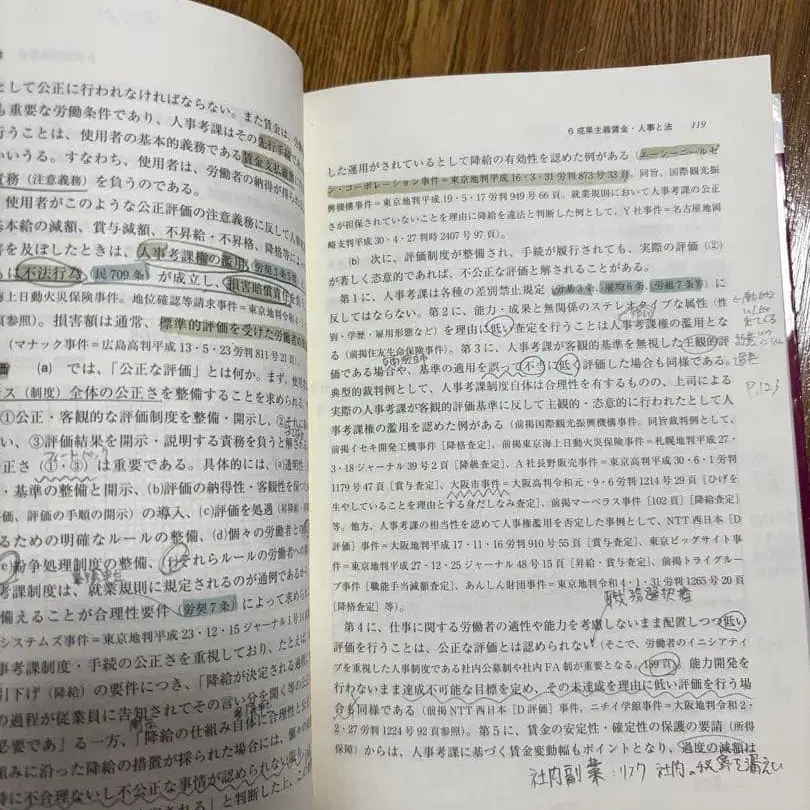 として公正に行われなければならない。また賃金は、
も重要な労働条件であり、人事考課はその先行手続
行うことは、使用者の基本的義務である賃金支払義務
いいうる。すなわち、使用者は、労働者の納得が得られ
責務（注意義務）を負うのである。
使用者がこのような公正評価の注意義務に反して人事
基本給の減額、賞与減額、不昇給・不昇格、降格等によ
害を及ぼしたときは、人事考課権の濫用
は不法行為（民709条）が成立し、損害賠償責任を
海上日動火災保険事件。地位確認等請求事件＝東京地判令和4
頁参照）。損害額は通常、標準的評価を受けた労働者の
（マナック事件＝広島高判平13・5・23労判811号21頁）。
(a) では、「公正な評価」とは何か。まず、使用
ス（制度）全体の公正さを整備することを求められる
①公正・客観的な評価制度を整備・開示し、②それに
い、③評価結果を開示・説明する責務を負うと解され
正さ（①・③）は重要である。具体的には、(a)透明性
・基準の整備と開示、(b)評価の納得性・客観性を保つ
価、評価の手順の開示）の導入、(c)評価を処遇
るための明確なルールの整備、(d)個々の労働者との
(e)紛争処理制度の整備、(f)それらルールの労働者への
考課制度は、就業規則に規定されるのが通例であるか
備えることが合理性要件（労契7条）によって求められ
システムズ事件＝東京地判平成23・12・15ジャーナル1号
事考課制度・手続の公正さを重視しており、たとえば
引下げ（降給）の要件につき、「降給が決定される過程
の過程が従業員に告知されてその言い分を聞く等の公
必要であ」る一方、「降給の仕組み自体に合理性と公
組みに沿った降給の措置が採られた場合には、個々の
特に不合理ないし不公正な事情が認められない限り
」と判断した上、この
6 成果主義賃金・人事と法　119
した運用がされているとして降給の有効性を認めた例がある（エーシーニールセ
ン・コーポレーション事件＝東京地判平成16・3・31労判873号33頁。同旨、国際観光振
興機構事件＝東京地判平成19・5・17労判949号66頁。就業規則において人事考課の公正
さが担保されていないことを理由に降給を違法と判断した例として、Y社事件＝名古屋地岡
崎支判平成30・4・27判時2407号97頁）。
(b) 次に、評価制度が整備され、手続が履行されても、実際の評価（②）
が著しく恣意的であれば、不公正な評価と解されることがある。
第1に、人事考課は各種の差別禁止規定（労基3条、雇均6条、労組7条等）に
反してはならない。第2に、能力・成果と無関係のステレオタイプな属性（性
別・学歴・雇用形態など）を理由に低い査定を行うことは人事考課権の濫用とな
る（前掲住友生命保険事件）。第3に、人事考課が客観的基準を無視した主観的評
価である場合や、基準の適用を誤って不当に低く評価した場合も同様である。
典型的裁判例として、人事考課制度自体は合理性を有するものの、上司による
実際の人事考課が客観的評価基準に反して主観的・恣意的に行われたとして人
事考課権の濫用を認めた例がある（前掲国際観光振興機構事件。同旨裁判例として、
前掲イセキ開発工機事件［降格査定］、前掲東京海上日動火災保険事件＝札幌地判平成27・
3・18ジャーナル39号2頁［降級査定］、A社長野販売事件＝東京高判平成30・6・1労判
1179号47頁［賞与査定］、大阪市事件＝大阪高判令和元・9・6労判1214号29頁［ひげを
生やしていることを理由とする身だしなみ査定］、前掲マーベラス事件［102頁］［降給査定］
等。他方、人事考課の相当性を認めて人事権濫用を否定した事例として、NTT西日本［D
評価］事件＝大阪地判平成17・11・16労判910号55頁［賞与査定］、東京ビッグサイト事
件＝東京地判平成27・12・25ジャーナル48号15頁［昇給・賞与査定］、前掲トライグルー
プ事件［職能手当減額査定］、あんしん財団事件＝東京地判令和4・1・31労判1265号20頁
［降格査定］等）。
職務選択権
第4に、仕事に関する労働者の適性や能力を考慮しないまま配置しつつ低い
評価を行うことは、公正な評価とは認められない（そこで、労働者のイニシアティ
ブを重視した人事制度である社内公募制や社内FA制が重要となる。189頁）。能力開発を
行わないまま達成不可能な目標を定め、その未達成を理由に低い評価を行う場
合も同様である（前掲NTT西日本［D評価］事件、ニチイ学館事件＝大阪地判令和2・
2・27労判1224号92頁参照）。第5に、賃金の安定性・確定性の保護の要請（所得
保障）からは、人事考課に基づく賃金変動幅もポイントとなり、過度の減額は
社内副業：リスク 社内の秘密を漏えい
P.123